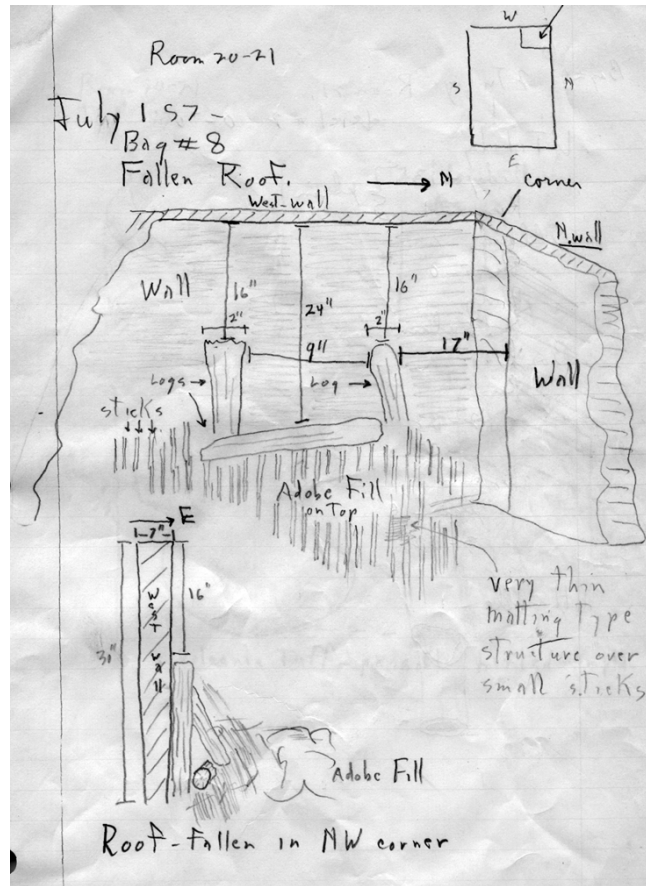 Room 20-21
W
S
N
E
July 1 57-
Bag # 8
Fallen Roof.
→ N
West-wall
corner
N. wall
Wall
16"
24"
16"
2"
2"
9"
17"
Wall
Logs →
Log →
sticks
Adobe Fill
on Top
→ E
7"
16"
30"
West Wall
very thin
matting type
structure over
small sticks
Adobe Fill
Roof-Fallen in NW corner